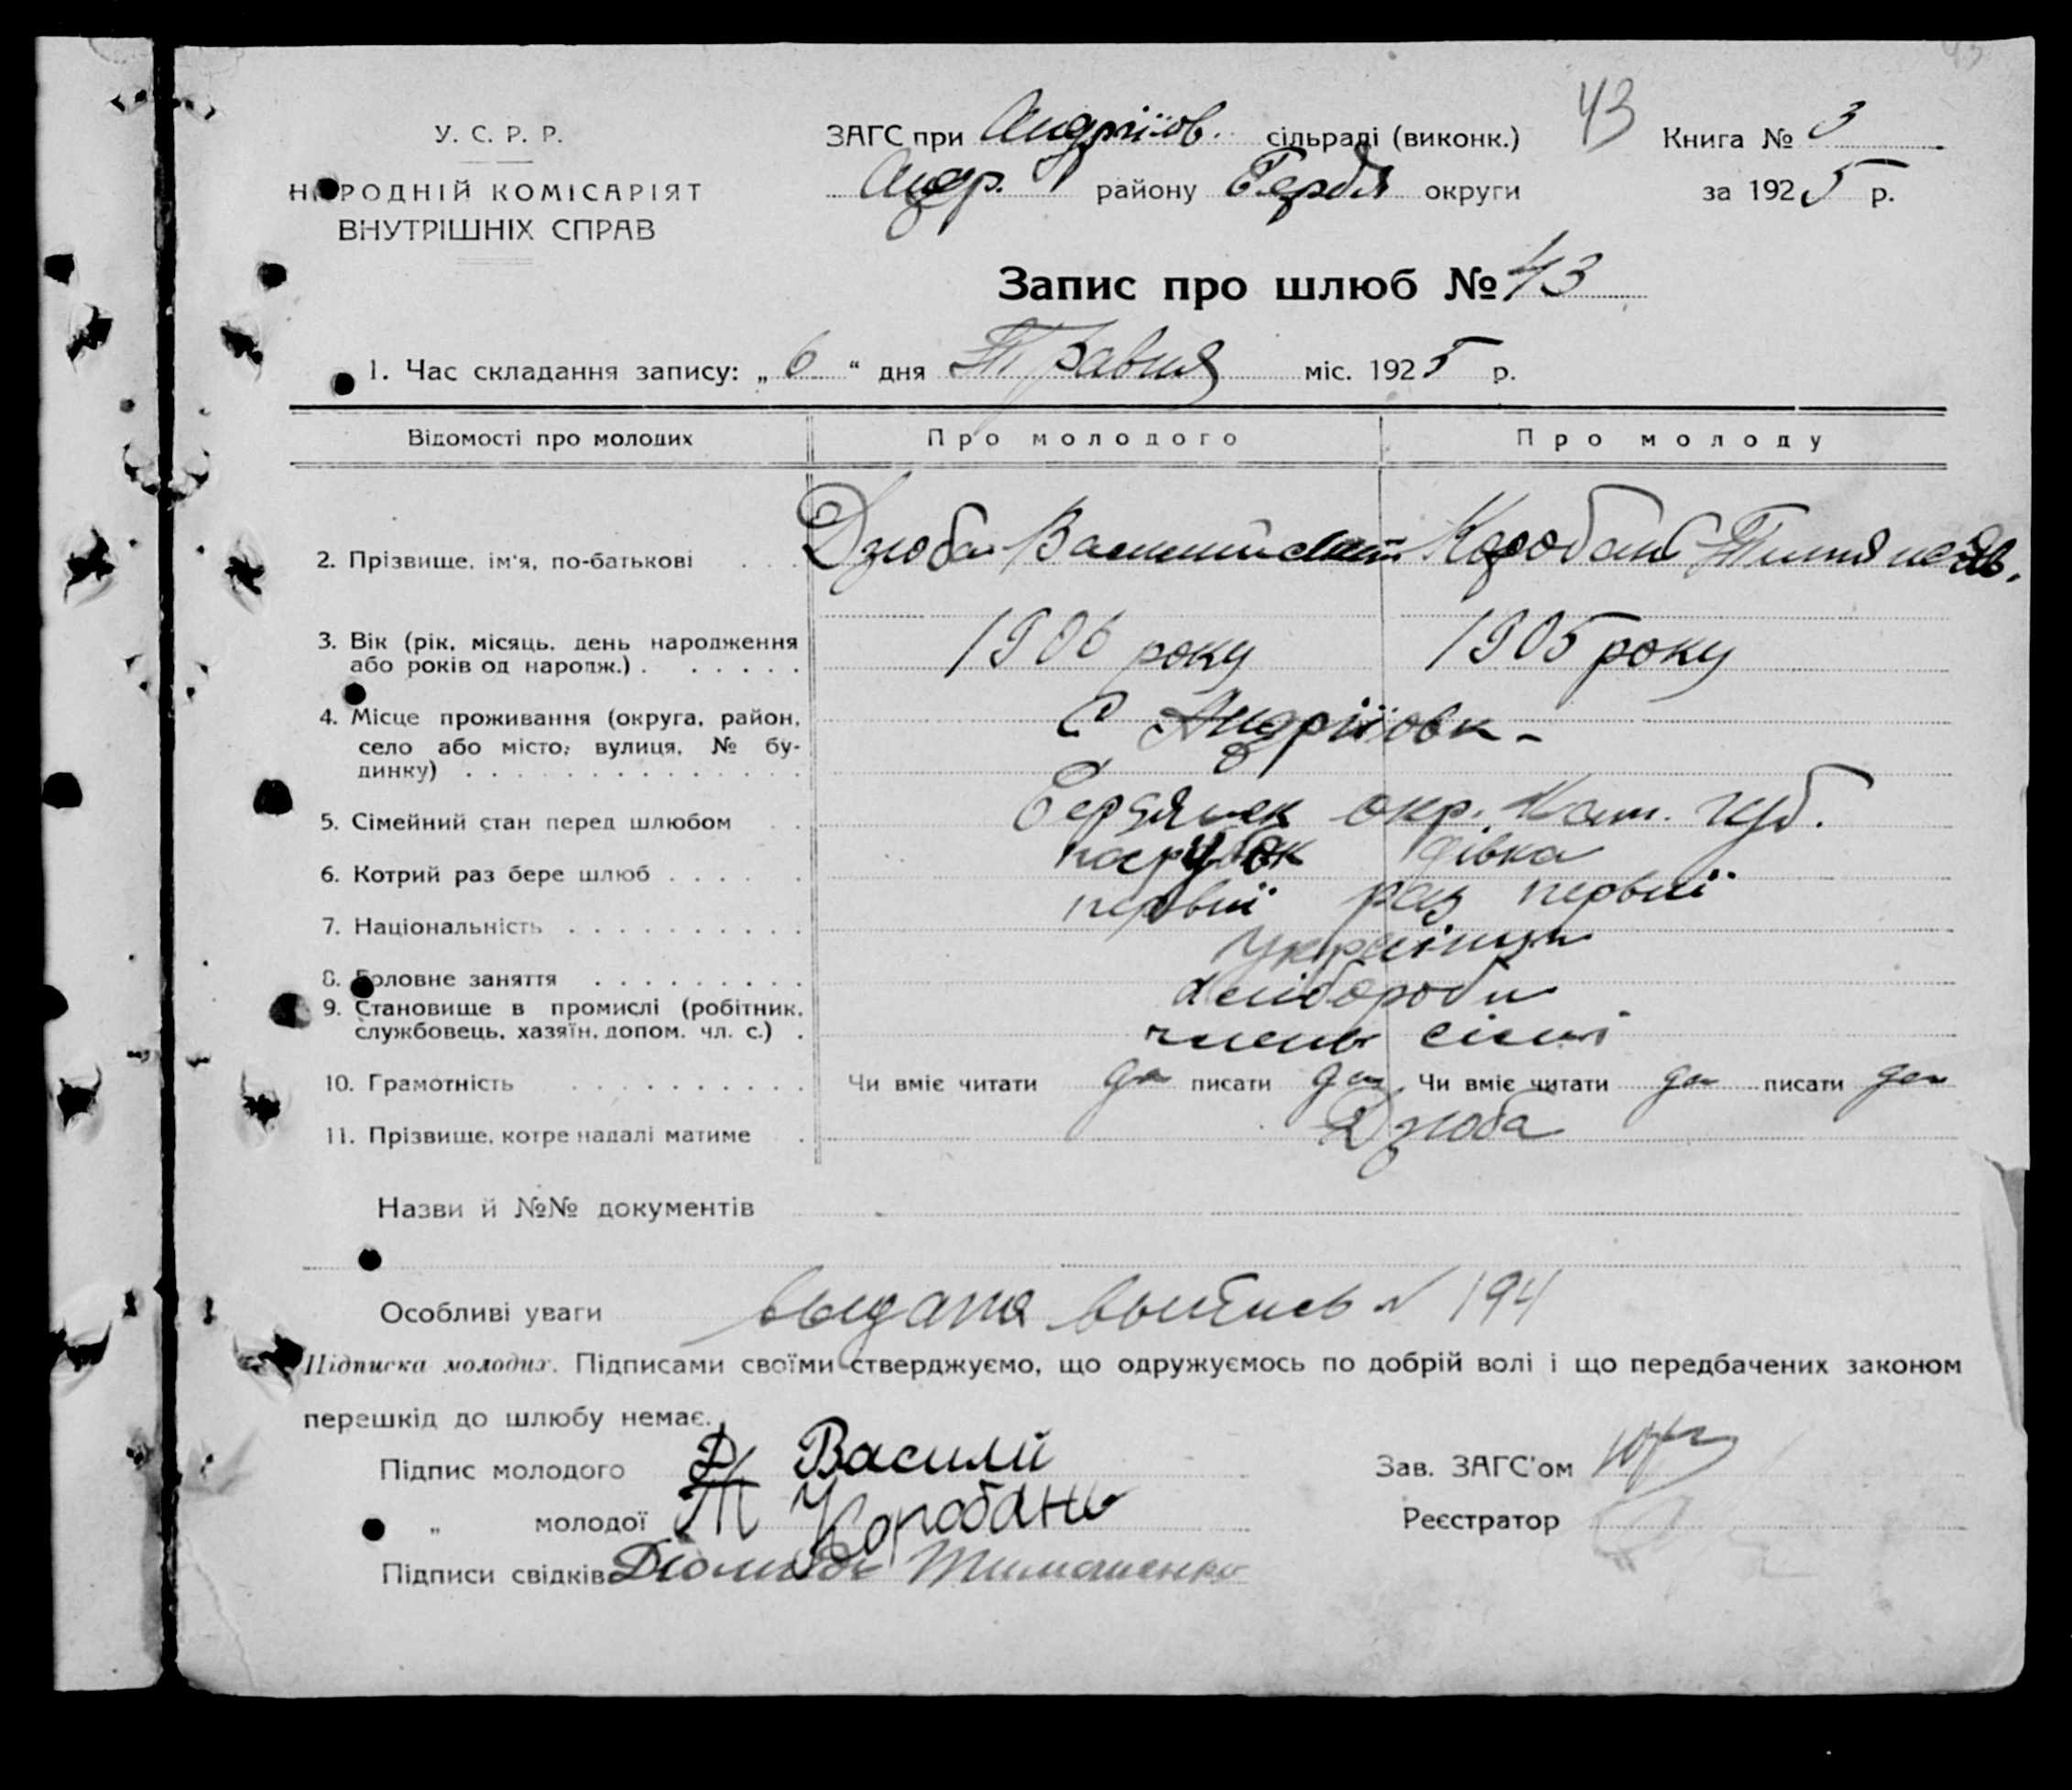 43
У. С. Р. Р.
НАРОДНІЙ КОМІСАРІЯТ
ВНУТРІШНІХ СПРАВ
ЗАГС при Андріїов. сільраді (виконк.)
43
Книга № 3
Андр. району Бердя округи
за 1925 р.
Запис про шлюб № 43
1. Час складання запису: „6“ дня Травня міс. 1925 р.
Відомості про молодих Про молодого Про молоду
2. Прізвище, ім'я, по-батькові . . . Дзюба Василий Коробань
3. Вік (рік, місяць, день народження
або років од народж.) . . . . . . 1906 року 1905 року
4. Місце проживання (округа, район, С Андріїовк-
село або місто, вулиця, № бу-
динку) . . . . . . . . . . . . . .
5. Сімейний стан перед шлюбом . . Бердянск окр. Кат. губ.
парубок дівка
6. Котрий раз бере шлюб . . . . .
первиї раз первиї
7. Національність . . . . . . . . . .
Українци
8. Головне заняття . . . . . . . . .
хлібороби
9. Становище в промислі (робітник,
службовець, хазяїн, допом. чл. с.) . члены сімї
10. Грамотність . . . . . . . . . . Чи вміє читати да писати да Чи вміє читати да писати да
11. Прізвище, котре надалі матиме . Дзюба
Назви й №№ документів
Особливі уваги выдана выпись № 194
Підписка молодих. Підписами своїми стверджуємо, що одружуємось по добрій волі і що передбачених законом
перешкід до шлюбу немає.
Підпис молодого Д Василй
Зав. ЗАГС'ом
„ молодої Т Коробань
Реєстратор
Підписи свідків Тимошенко